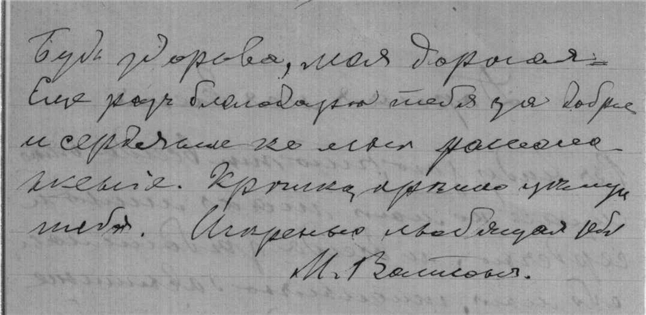 Будь здорова, моя дорогая =
Еще разъ благодарю тебя за доброе
и сердечное ко мнѣ располо-
жение. Крѣпко, крѣпко цѣлую
тебя. Искренно любящая тебя
М.